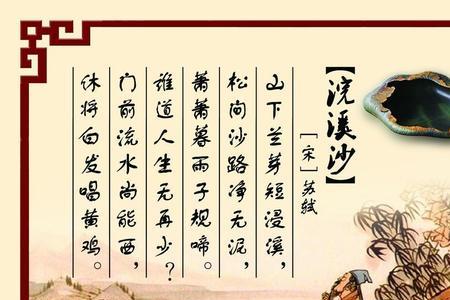 【浣溪沙】
[宋]苏轼
山下兰芽短浸溪，
松间沙路净无泥，
萧萧暮雨子规啼。
谁道人生无再少？
门前流水尚能西，
休将白发唱黄鸡。